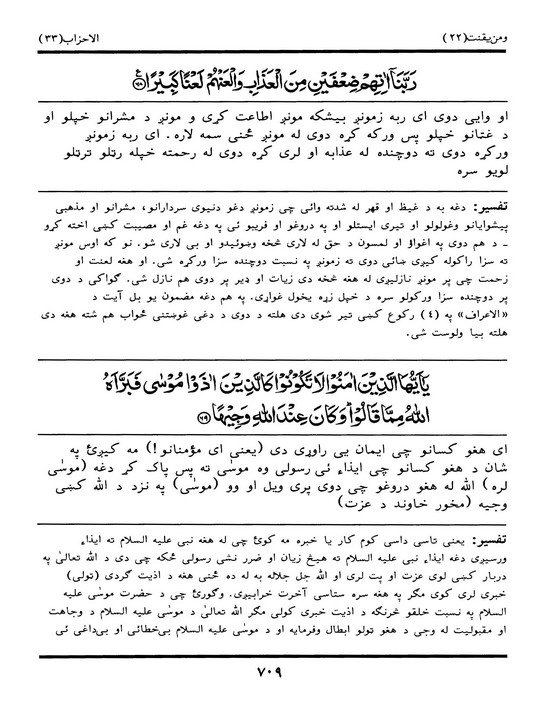 ومن یقنت(۲۲) الاحزاب(۳۳)
رَبَّنَآ اٰتِهِمْ ضِعْفَيْنِ مِنَ الْعَذَابِ وَالْعَنْهُمْ لَعْنًا كَبِيْرًا ﴿۶۸﴾
او وایی دوی ای ربه زمونږ بیشکه مونږ اطاعت کړی و مونږ د مشرانو خپلو او
د غټانو خپلو پس ورکه کړه دوی له مونږ څنی سمه لاره. ای ربه زمونږ
ورکړه دوی ته دوچنده له عذابه او لری کړه دوی له رحمته خپله رټلو ترټلو
لویو سره
تفسیر: دغه به د غیظ او قهر له شدته وائی چی زمونږ دغو دنیوی سردارانو، مشرانو او مذهبی
پیشوایانو وغولولو او تیری ایستلو او په دروغو او فریبو ئی په دغه غم او مصیبت کښی اخته کړو
ـ د هم دوی په اغواؤ او لمسون د حق له لاری څخه وښوئیدو او بی لاری شو. نو که اوس مونږ
ته سزا راکوله کیږی ښائی دوی ته زمونږ په نسبت دوچنده سزا ورکړه شی. او هغه لعنت او
زحمت چی پر مونږ نازلیږی له هغه څخه دی زیات او ډیر پر دوی هم نازل شی. ګواکی د دوی
پر دوچنده سزا ورکولو سره د خپل زړه یخول غواړی. په هم دغه مضمون یو بل آیت د
«الاعراف» په (٤) رکوع کښی تیر شوی دی هلته د دوی د دغی غوښتنی ځواب هم شته هغه دی
هلته بیا ولوست شی.
يٰٓاَيُّهَا الَّذِيْنَ اٰمَنُوْا لَا تَكُوْنُوْا كَالَّذِيْنَ اٰذَوْا مُوْسٰى فَبَرَّاَهُ
اللّٰهُ مِمَّا قَالُوْا ۭ وَكَانَ عِنْدَ اللّٰهِ وَجِيْهًا ﴿۶۹﴾
ای هغو کسانو چی ایمان یی راوړی دی (یعنی ای مؤمنانو!) مه کیږئ په
شان د هغو کسانو چی ایذاء ئی رسولی وه موسٰی ته پس پاک کړ دغه (موسٰی
لره) الله له هغو دروغو چی دوی پری ویل او وو (موسٰی) په نزد د الله کښی
وجیه (مخور خاوند د عزت)
تفسیر: یعنی تاسی داسی کوم کار یا خبره مه کوئ چی له هغه نبی علیه السلام ته ایذاء
ورسیږی دغه ایذاء نبی علیه السلام ته هیڅ زیان او ضرر نشی رسولی ځکه چی دی د الله تعالیٰ په
دربار کښی لوی عزت او پت لری او الله جل جلاله به له ده څنی هغه د اذیت ګردی (ټولی)
خبری لری کوی مگر په هغه سره ستاسی آخرت خرابیږی. وګورئ چی د حضرت موسٰی علیه
السلام په نسبت خلقو څرنګه د اذیت خبری کولی مگر الله تعالیٰ د موسٰی علیه السلام د وجاهت
او مقبولیت له وجی د هغو ټولو ابطال وفرمایه او د موسٰی علیه السلام بی‌خطائی او بی‌داغی ئی
۷۰۹